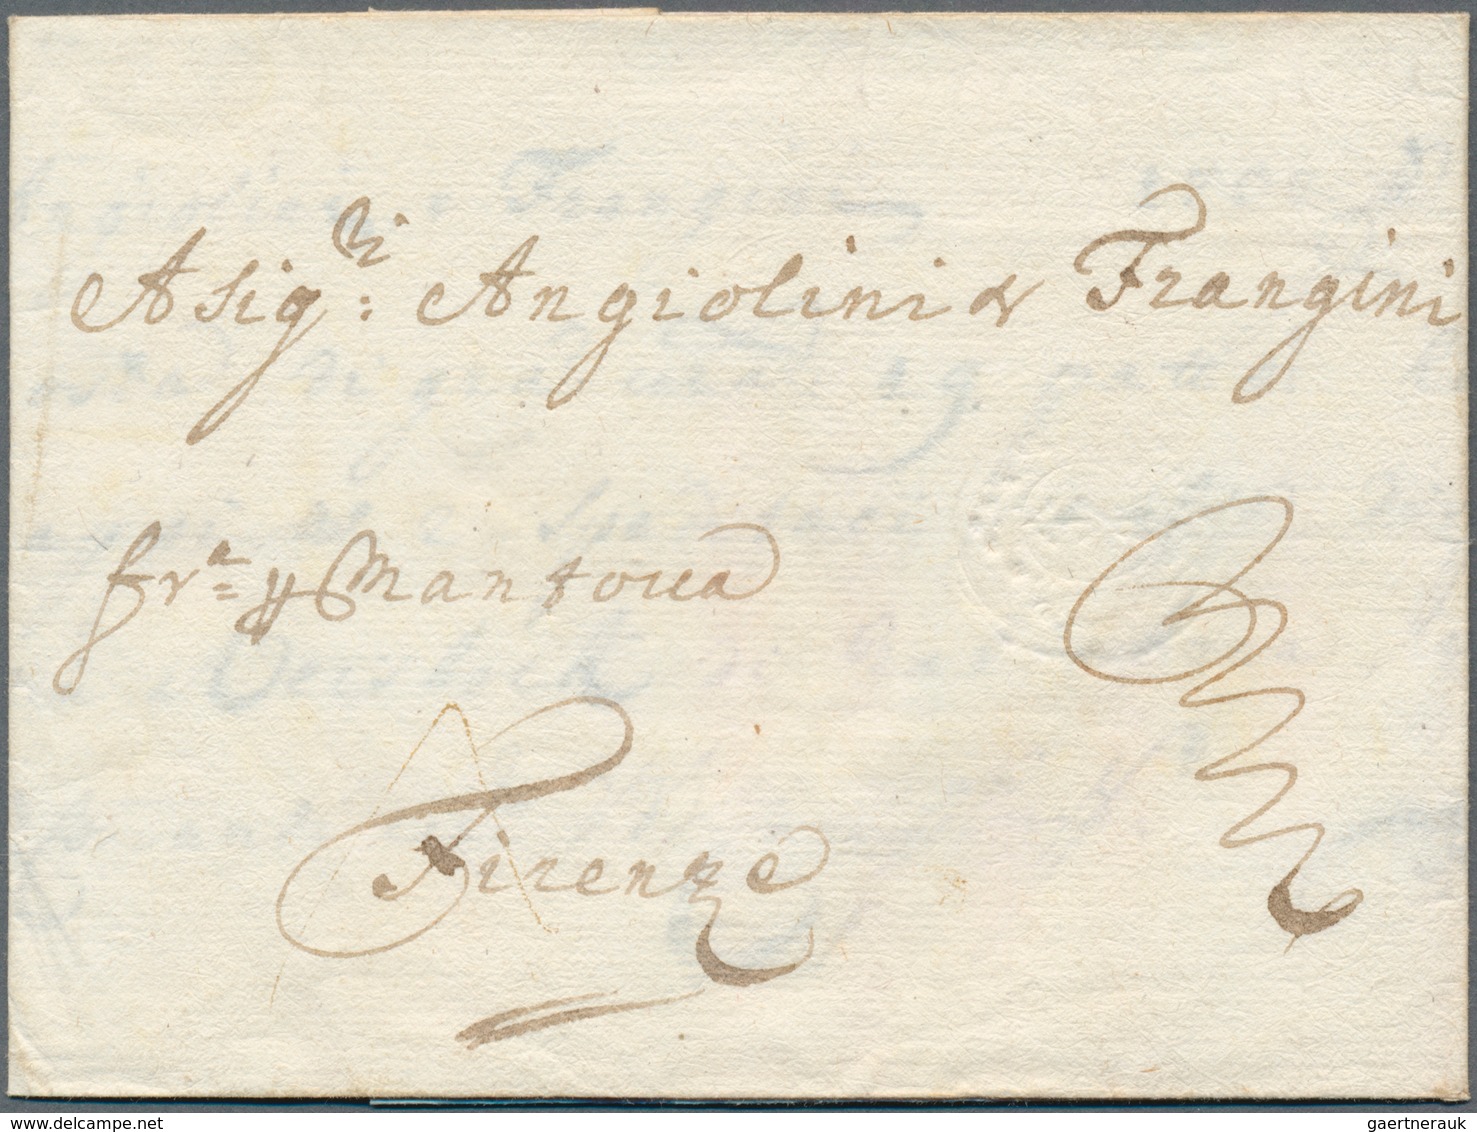 A Sig.ri Angiolini & Frangini
fr.a p Mantova
Firenze
gaertnerauk